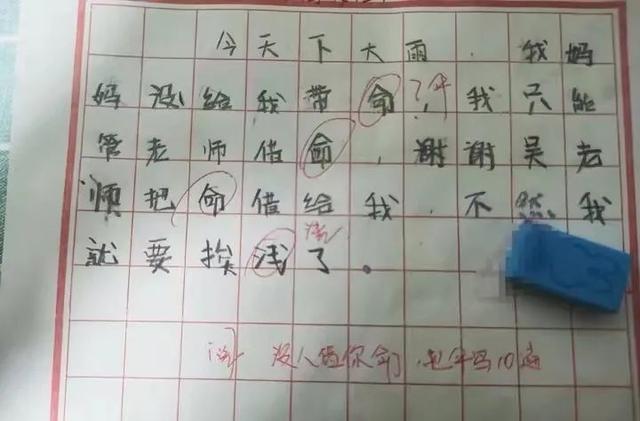 今天下大雨.我妈
妈没给我带命?伞,我只能
管老师借命,谢谢吴老
师把命借给我.不然我
淋
就要挨浅了。
没人借你命,把伞写10遍